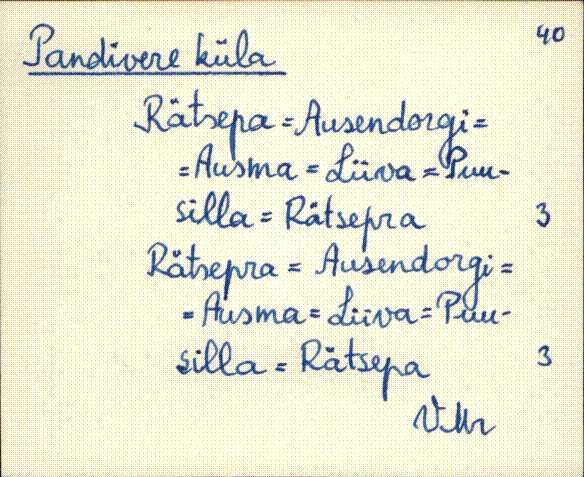 40
Pandivere küla
Rätsepa = Ausendorgi =
= Ausma = Liiva = Puu-
silla = Rätsepra 3
Rätsepra = Ausendorgi =
= Ausma = Liiva = Puu-
silla = Rätsepa 3
VMr